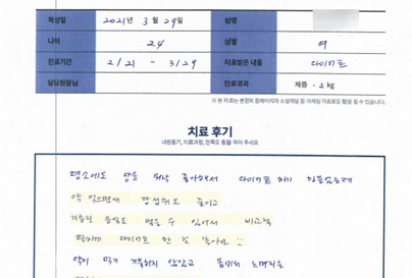 작성일 2021년 3월 29일 성명
나이 24 성별 여
진료기간 2/21 - 3/29 치료받은 내용 다이어트
담당원장님 진료경과 체중 -2kg
※ 본 자료는 본원의 홈페이지와 소셜채널 등 마케팅 자료로도 활용 될 수 있습니다.
치료 후기
내원동기, 치료과정, 만족도 등을 적어 주세요
평소에도 단 좋아해서 다이어트 하기 힘들었는데
약 먹으면서 간식위도 줄이고
먹을 수 있어서 비교적
편하게 다이어트 한 것 같아요
약이 먹기 거북하지 않았고 몸의